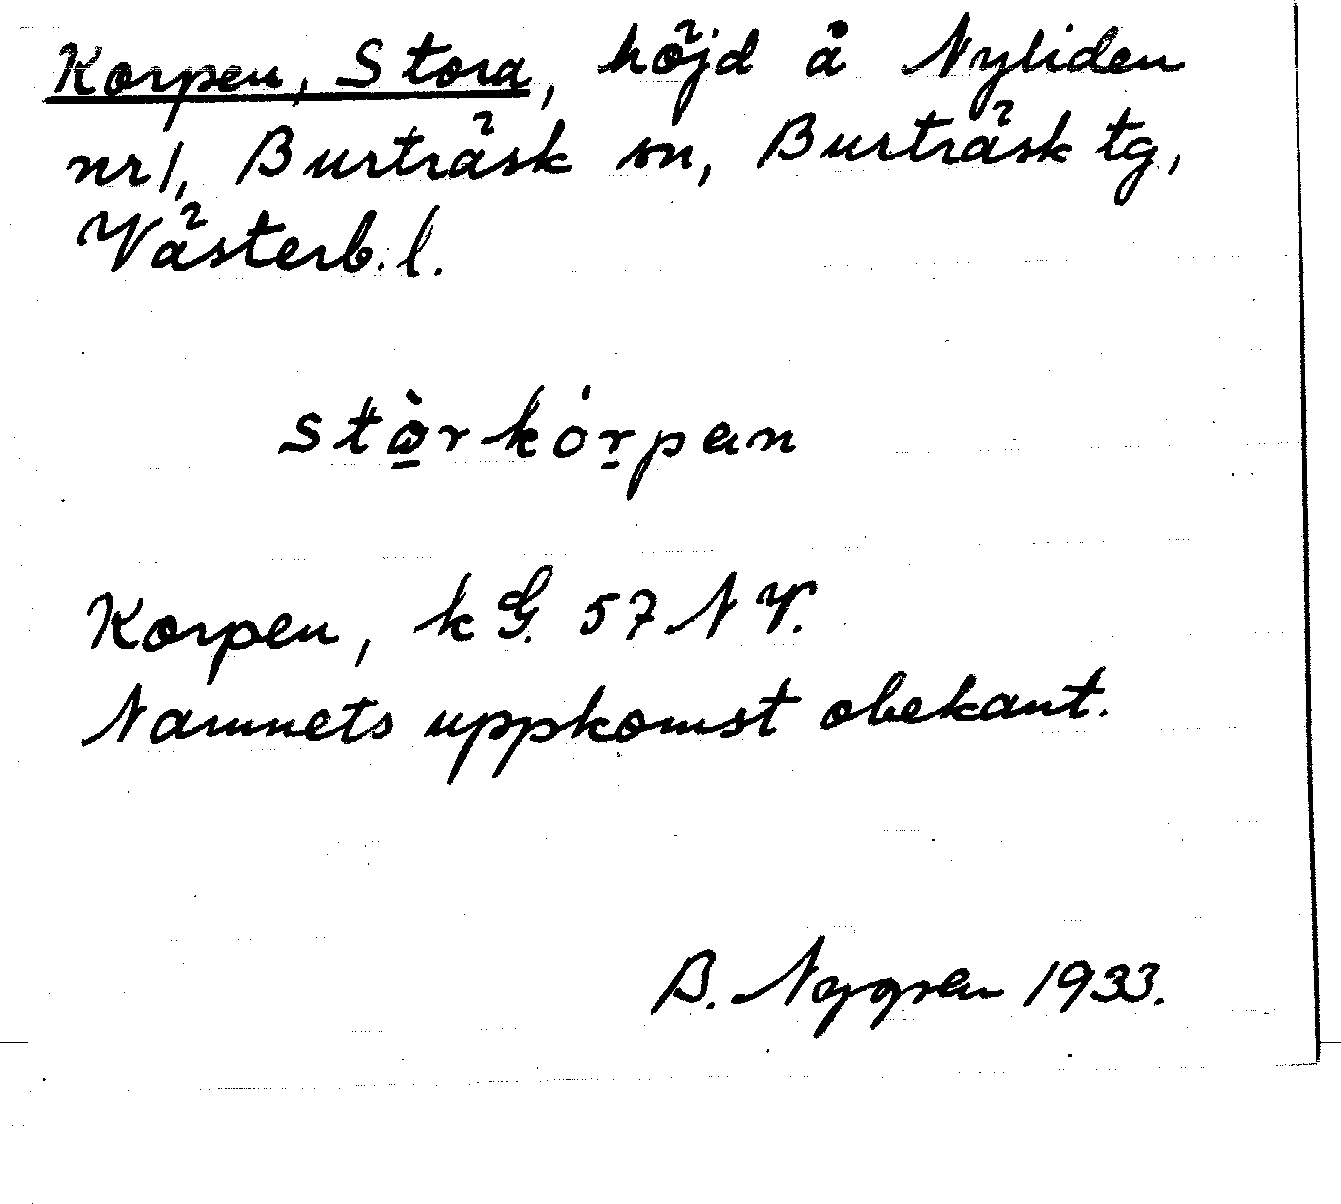 Korpen, Stora, höjd å Nyliden
nr 1, Burträsk sn, Burträsk tg,
Västerb. l.
stò̱rkór̠pan
Korpen, k G. 57 N V.
Namnets uppkomst obekant.
B. Nygren 1933.